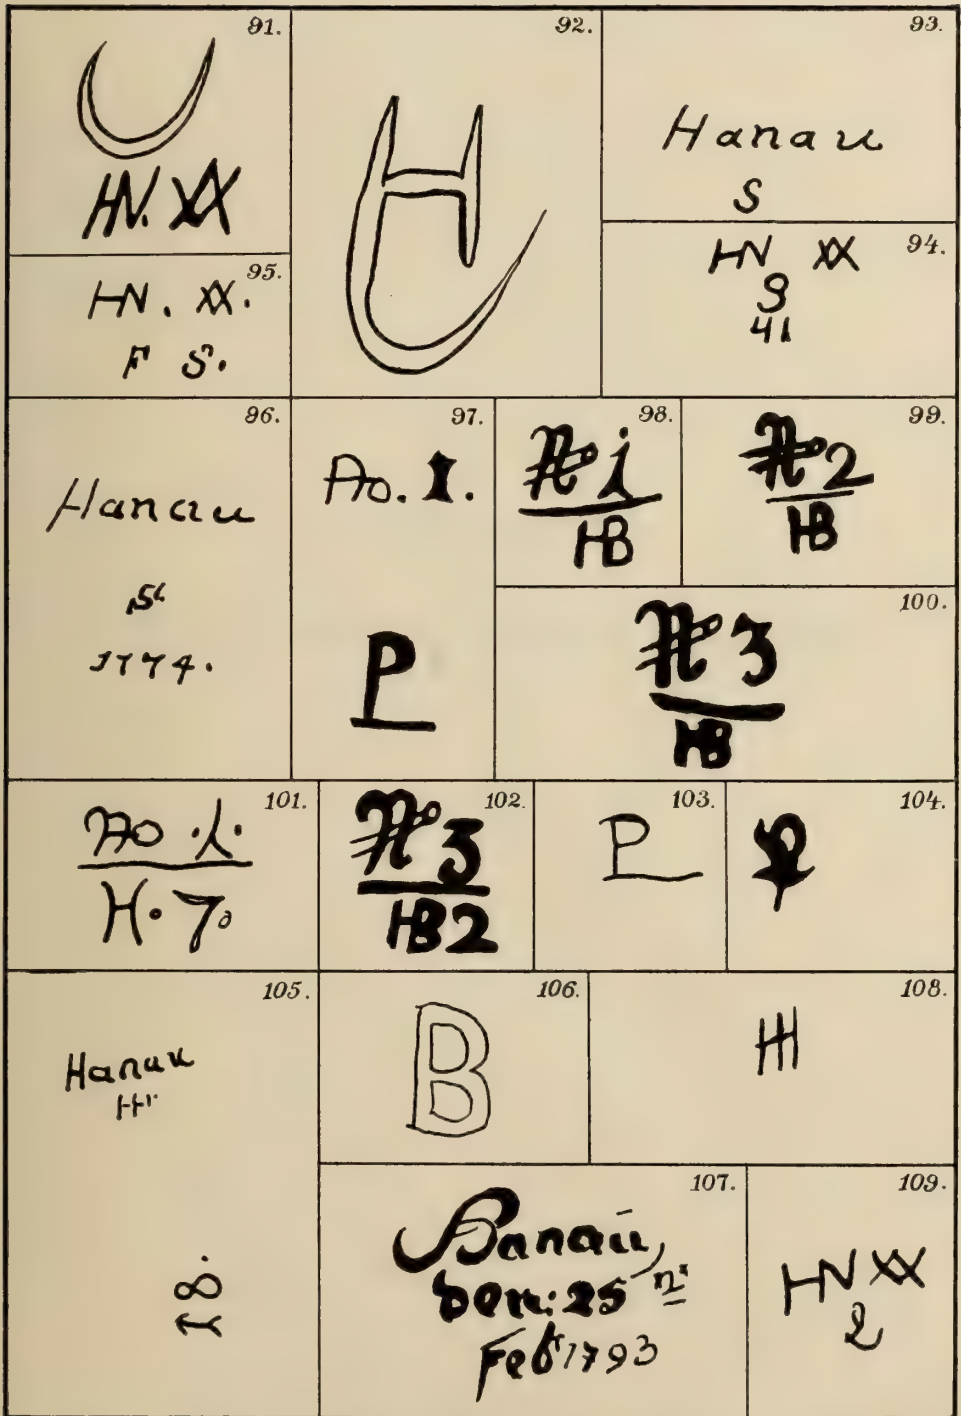 91.
HN. XX
92.
H
93.
Hanau
S
94.
HN XX
S
41
95.
HN. XX.
F S.
96.
Hanau
S
1774.
97.
Ao. I.
P
98.
No i
HB
99.
No 2
HB
100.
No 3
HB
101.
Ao .i.
H. 7o
102.
No 3
HB2
103.
P
104.
105.
Hanau
H
106.
B
107.
Hanau,
den: 25
Feb 1793
108.
109.
HN XX
2